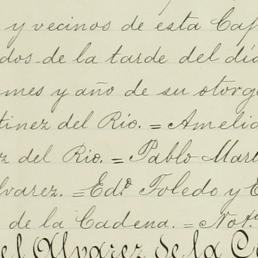 y vecinos de esta Cap
dos de la tarde del dia
mes y año de su otorg
tinez del Rio. = Amelia
z del Rio. = Pablo Mart
lvarez. = Ed.º Toledo y E
de la Cadena. = Not.º
el Alvarez de la C